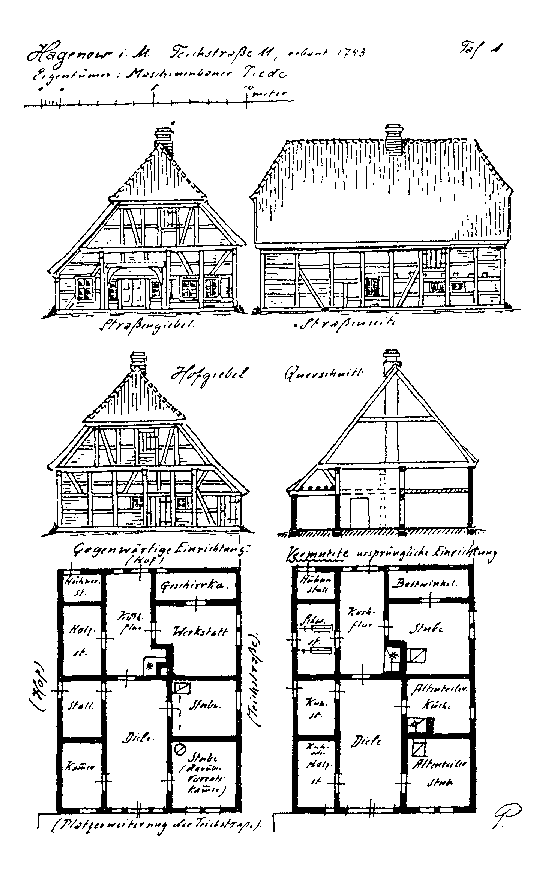 Hagenow i. M. Teichstraße 11, erbaut 1793
Taf 1
Eigentümer: Maschinenbauer Tiede
meter
Straßengiebel.
Straßenseite
Hofgiebel
Querschnitt
Gegenwärtige Einrichtung:
(Hof)
Vermutete ursprüngliche Einrichtung
Hühner
st.
Geschirrka.
Koch-
flur
Holz
st.
Werkstatt
(Hof)
(Teichstraße)
Stall
Stube
Diele
Stube
Kamer
Hühner
stall
Backwinkel.
Koch-
flur
Stube
st.
Kuh
st.
Altenteiler
Küche
Diele
Holz
st
Altenteiler
Stube
(Platzerweiterung der Teichstraße).